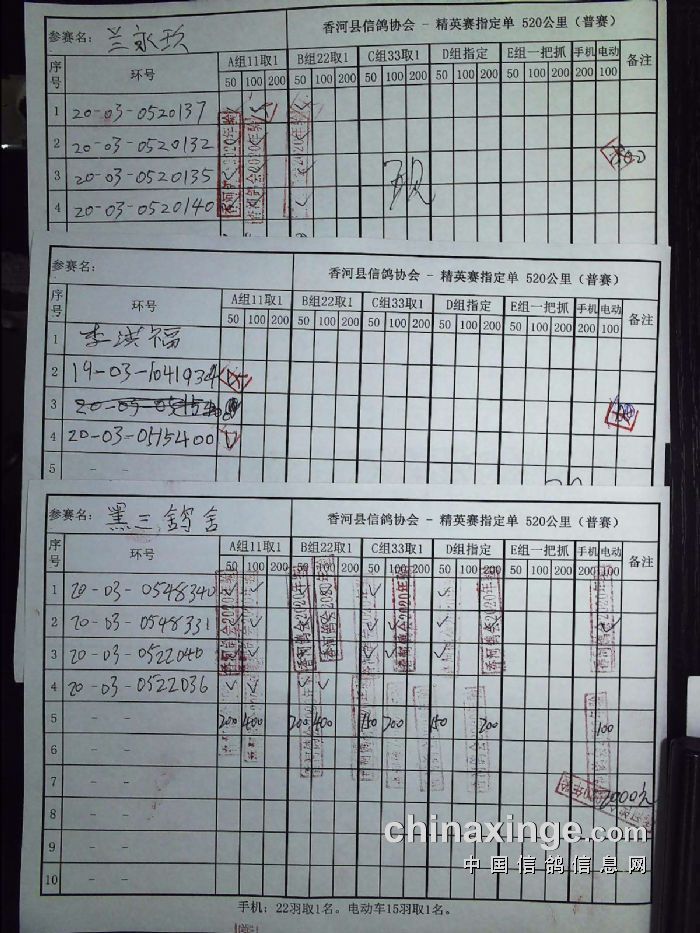 参赛名: 兰永玖 香河县信鸽协会 - 精英赛指定单 520公里（普赛）
序号 环号 A组11取1 B组22取1 C组33取1 D组指定 E组一把抓 手机 电动 备注
50 100 200 50 100 200 50 100 200 50 100 200 50 100 200 200 100
1 20-03-0520137
2 20-03-0520132
3 20-03-0520135
4 20-03-0520140
参赛名: 香河县信鸽协会 - 精英赛指定单 520公里（普赛）
序号 环号 A组11取1 B组22取1 C组33取1 D组指定 E组一把抓 手机 电动 备注
50 100 200 50 100 200 50 100 200 50 100 200 50 100 200 200 100
1 李洪福
2 19-03-1041934
3
4 20-03-0515400
5 - -
参赛名: 黑三鸽舍 香河县信鸽协会 - 精英赛指定单 520公里（普赛）
序号 环号 A组11取1 B组22取1 C组33取1 D组指定 E组一把抓 手机 电动 备注
50 100 200 50 100 200 50 100 200 50 100 200 50 100 200 200 100
1 20-03-0548340
2 20-03-0548331
3 20-03-0522040
4 20-03-0522036
5 - - 200 400 200 400 150 200 150 200 100
6 - -
7 - - 2000元
8 - -
9 - -
10 - -
手机: 22羽取1名。电动车15羽取1名。
chinaxinge.com
中国信鸽信息网